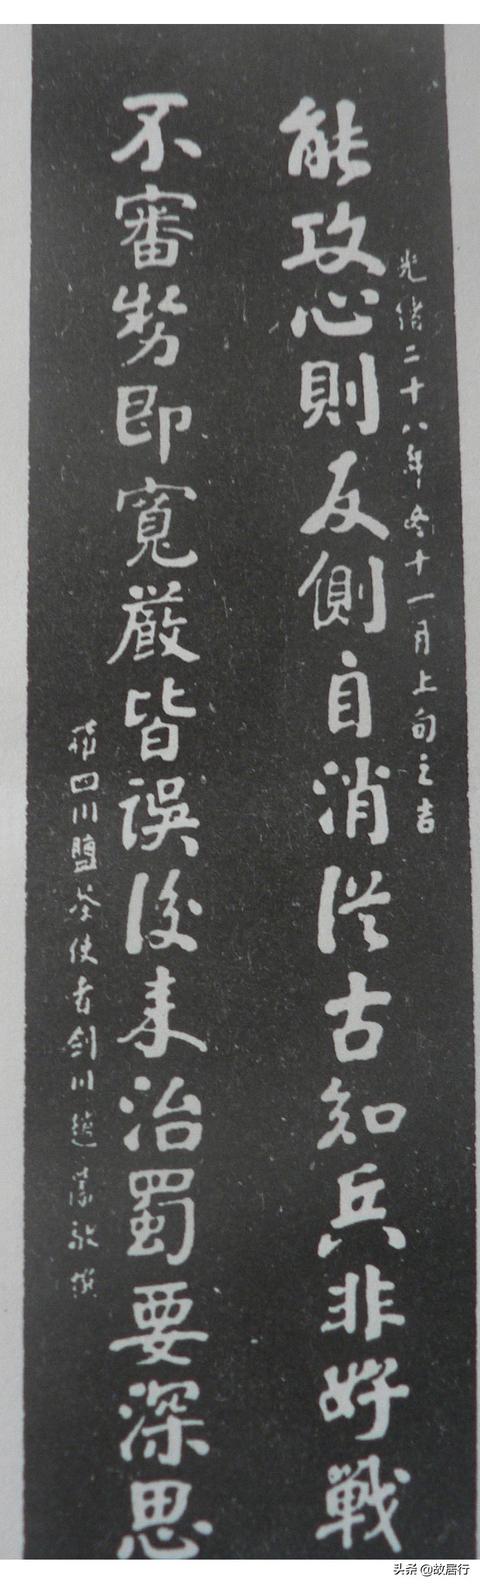 光緒二十八年冬十一月上旬之吉
能攻心則反側自消從古知兵非好戰
不審勢即寬嚴皆誤後來治蜀要深思
權四川鹽茶使者劍川趙藩敬撰
头条 @故居行